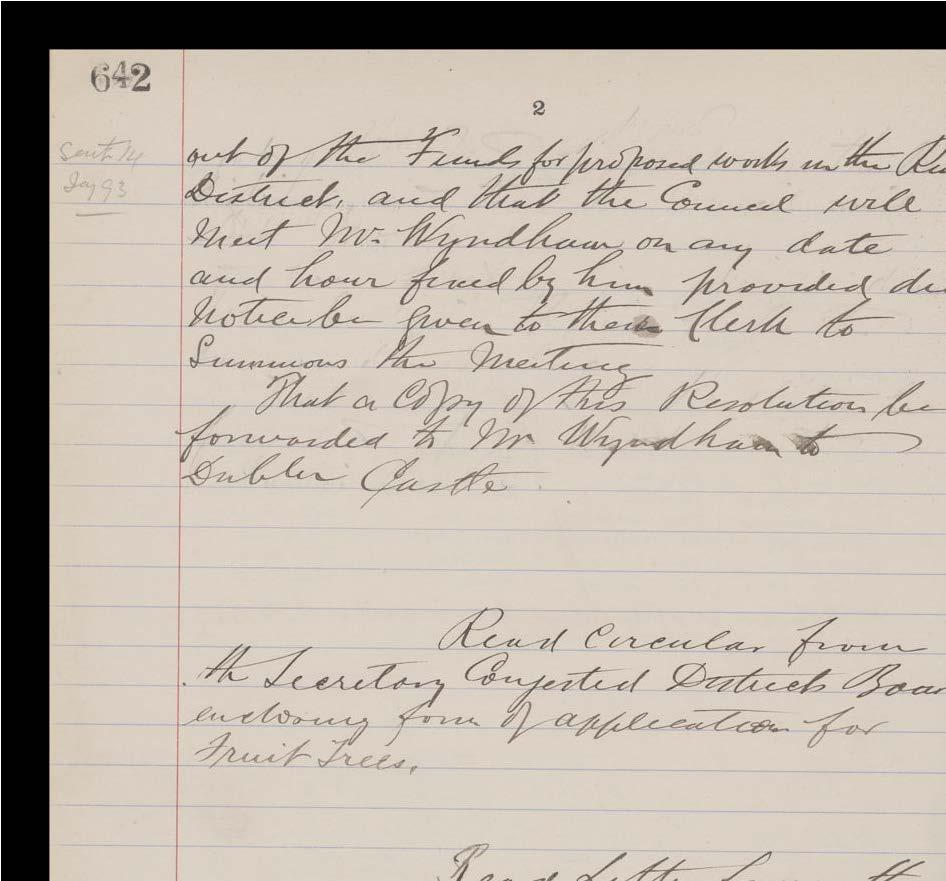 642
2
Sent 14
out of the Funds for proposed works in the
District, and that the Council will
Meet Mr. Wyndham on any date
and hour fixed by him provided
Notice be given to their Clerk to
Summons the Meeting
That a Copy of this Resolution be
forwarded to Mr Wyndham to
Dublin Castle
Read Circular from
the Secretary Congested Districts
enclosing form of application for
Fruit Trees.
Read